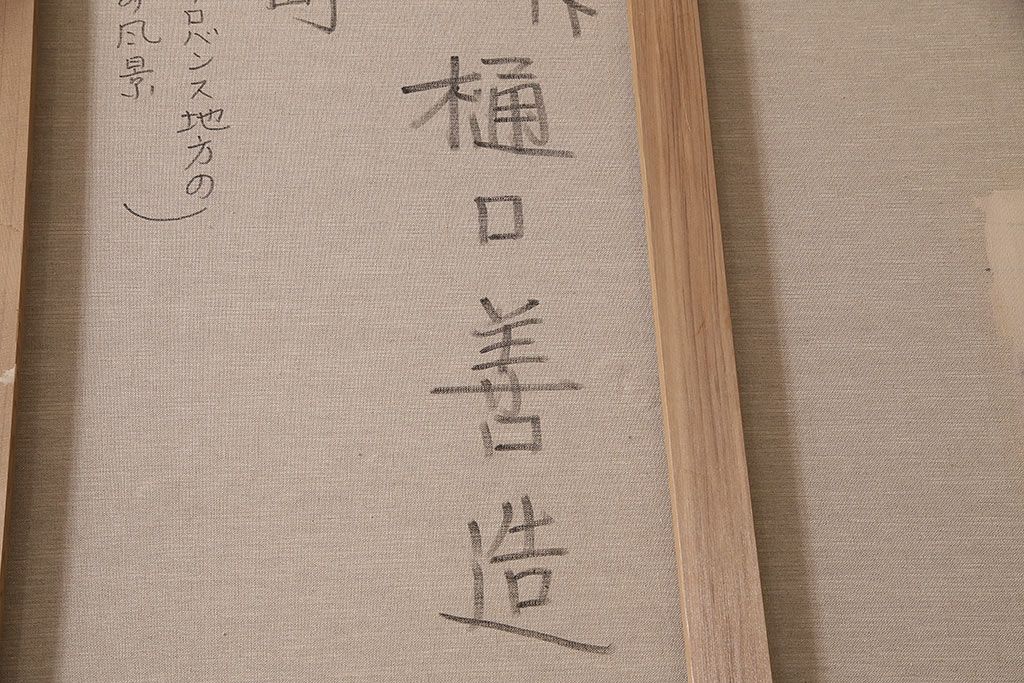 樋口善造
ロバンス地方の
の風景)